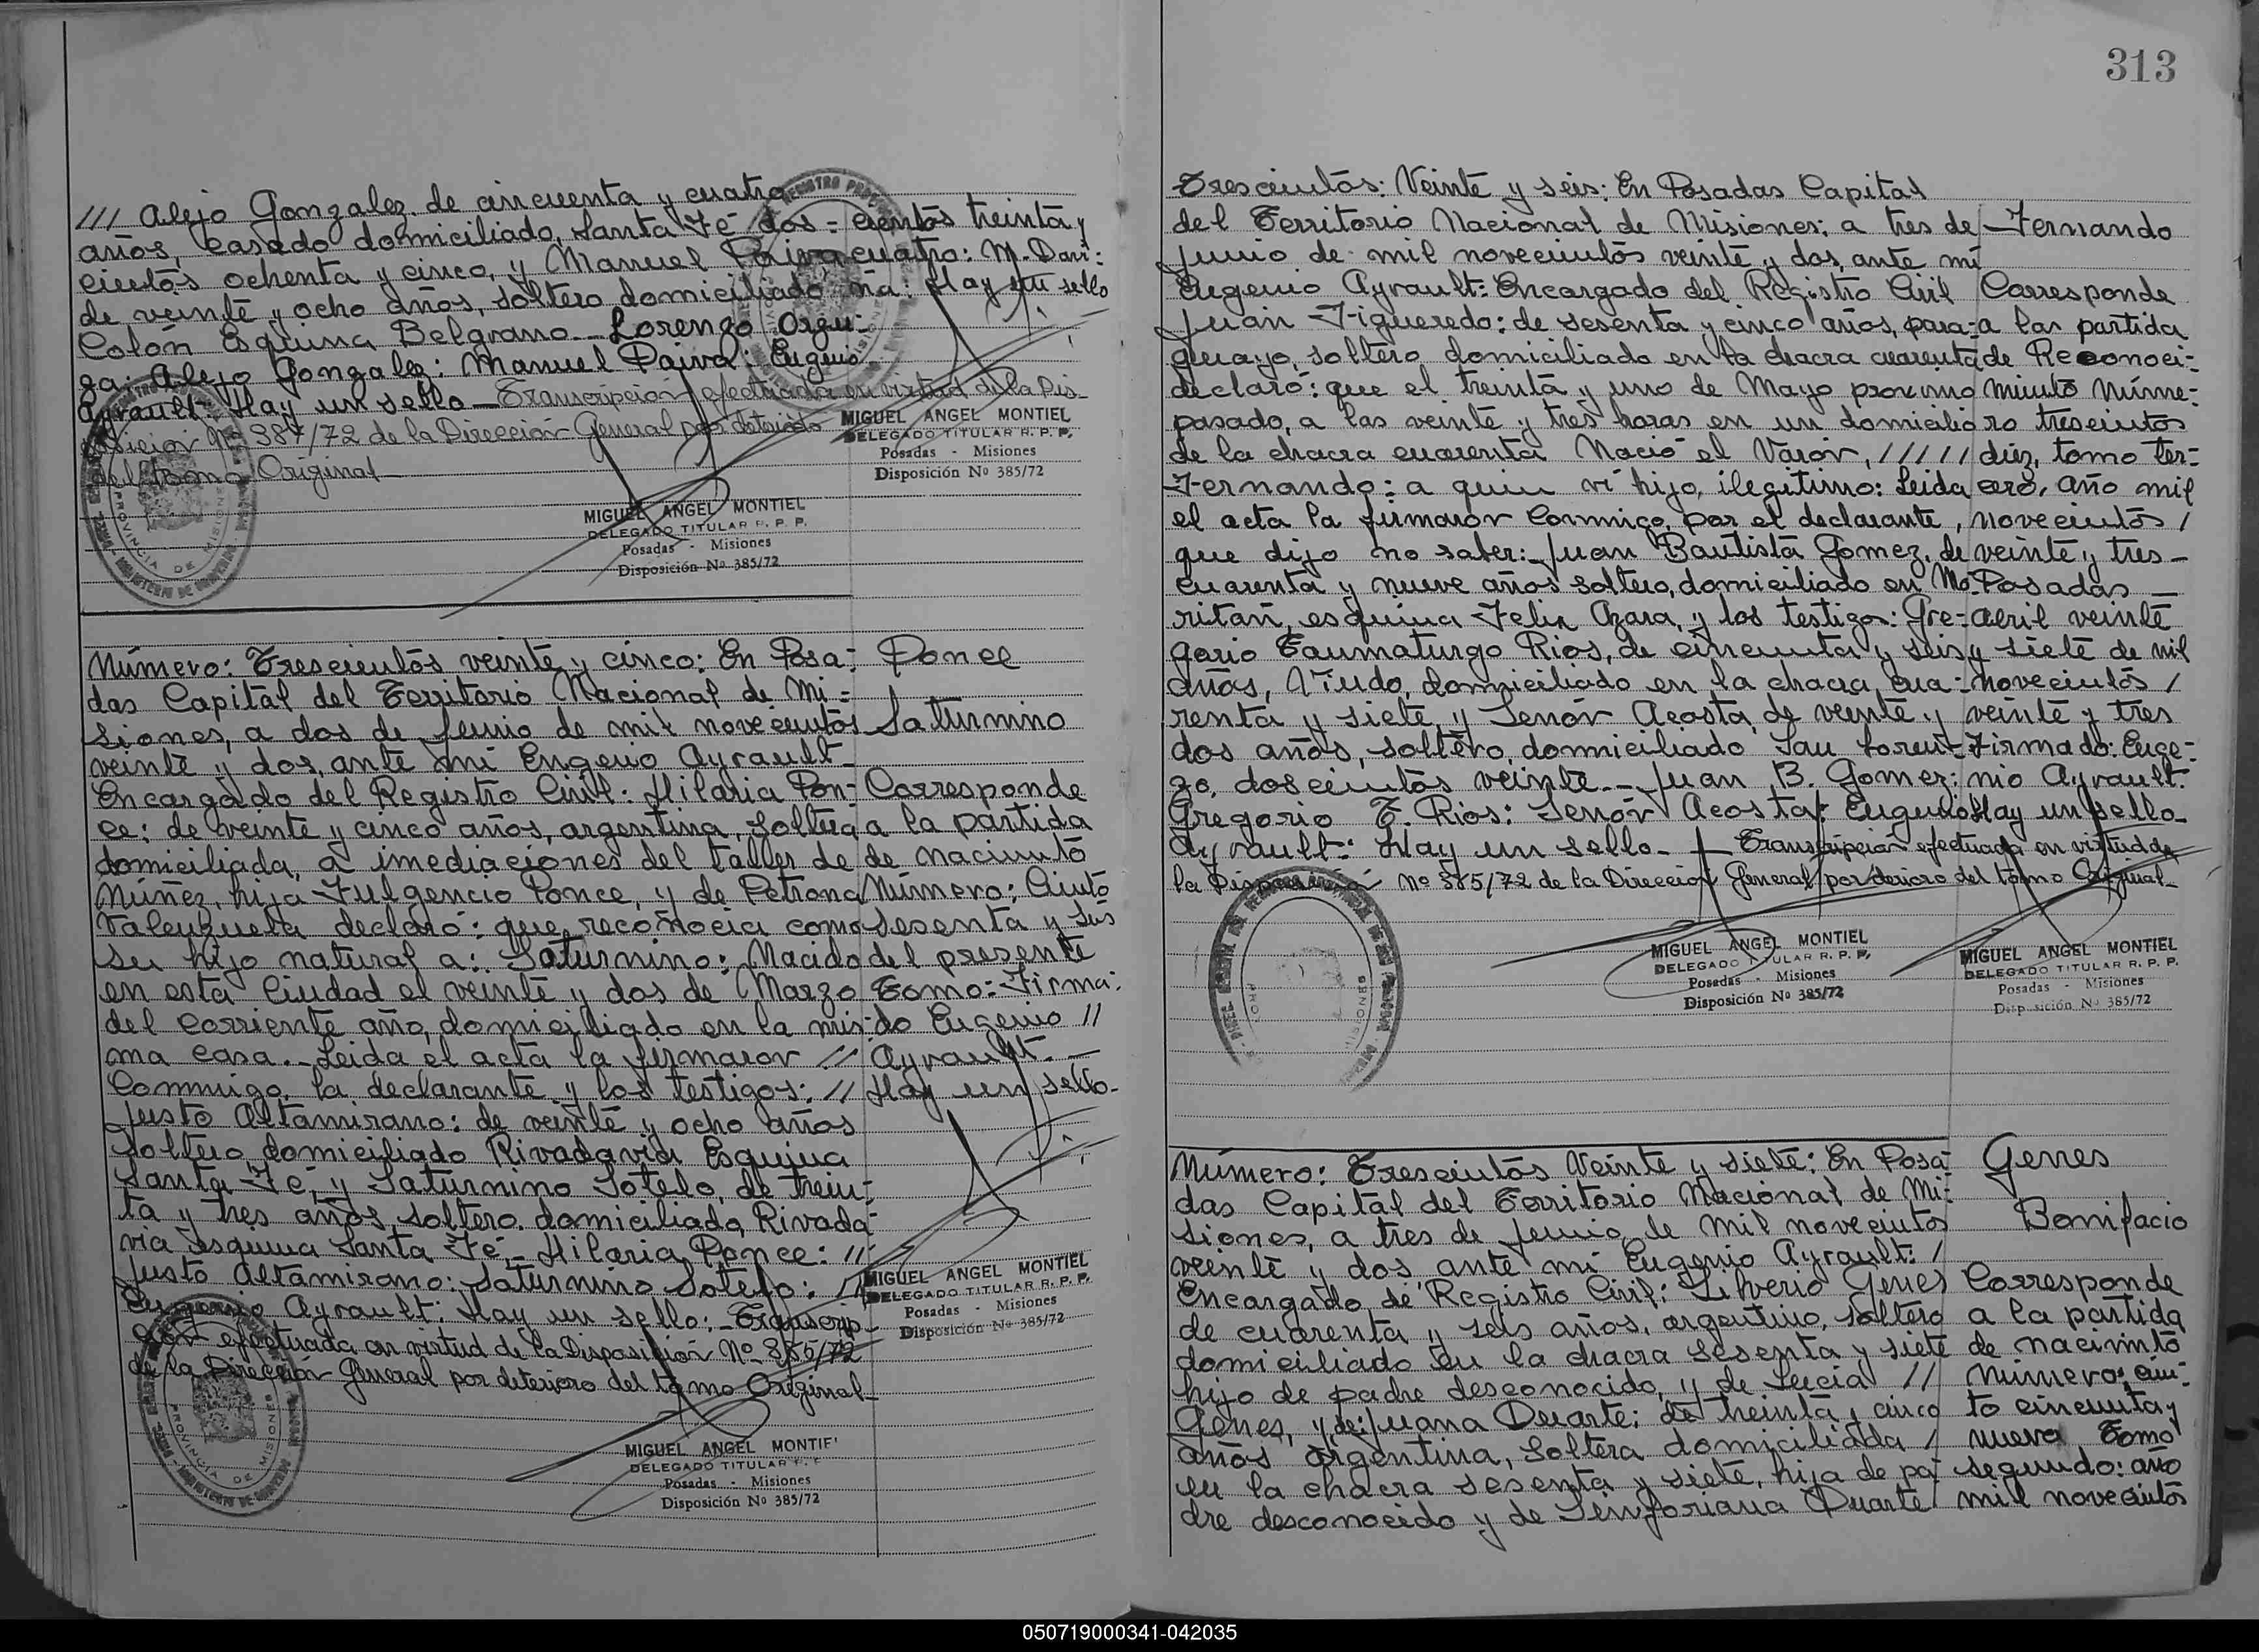 313
/// Alejo Gonzalez de cincuenta y cuatro
años, casado domiciliado, Santa Fé dos =
cientos ochenta y cinco, y Manuel Paiva
de veinte y ocho años, soltero domiciliado
Colón Esquina Belgrano - Lorenzo Orzu-
za: Alejo Gonzalez: Manuel Paiva: Eugenio
Ayrault: Hay un sello - Transcripción efectuada en virtud de la Dis-
posición Nº 387/72 de la Dirección General por deterioro
del tomo Original -
cientos treinta y
cuatro: M. Davi:
ña: Hay un sello
MIGUEL ANGEL MONTIEL
DELEGADO TITULAR R. P. P.
Posadas - Misiones
Disposición Nº 385/72
MIGUEL ANGEL MONTIEL
DELEGADO TITULAR R. P. P.
Posadas - Misiones
Disposición Nº 385/72
Número: Trescientos veinte y cinco: En Posa-
das Capital del Territorio Nacional de Mi =
siones, a dos de Junio de mil novecientos
veinte y dos, ante mi Eugenio Ayrault -
Encargado del Registro Civil: Hilaria Pon-
ce: de veinte y cinco años, argentina, soltera
domiciliada, a imediaciones del taller de
Núñez, hija Fulgencio Ponce, y de Petrona
Valenzuela declaró: que reconocia como
su hijo natural a: Saturnino: Nacido
en esta Ciudad el veinte y dos de Marzo
del corriente año, domiciliado en la mis-
ma casa. - Leida el acta la firmaron //
Conmigo, la declarante y los testigos: //
Justo Altamirano: de veinte y ocho años
soltero domiciliado Rivadavia Esquina
Santa Fé, y Saturnino Sotelo, de trein-
ta y tres años, soltero, domiciliado, Rivada-
via esquina Santa Fé - Hilaria Ponce: //
Justo Altamirano: Saturnino Sotelo: //
Eugenio Ayrault: Hay un sello: - Transcrip-
ción efectuada en virtud de la Disposición Nº 385/72
de la Dirección General por deterioro del tomo Original -
Ponce
Saturnino
Corresponde
a la partida
de nacimto
Número: Ciento
sesenta y seis
del presente
Tomo: Firma:
do Eugenio //
Ayrault. -
Hay un sello -
MIGUEL ANGEL MONTIEL
DELEGADO TITULAR R. P. P.
Posadas - Misiones
Disposición Nº 385/72
MIGUEL ANGEL MONTIE
DELEGADO TITULAR
Posadas - Misiones
Disposición Nº 385/72
Trescientos: Veinte y seis: En Posadas Capital
del Territorio Nacional de Misiones; a tres de
Junio de mil novecientos veinte y dos, ante mi
Eugenio Ayrault: Encargado del Registro Civil
Juan Figueredo: de sesenta y cinco años, para-
guayo, soltero domiciliado en la chacra cuarenta
declaró: que el treinta y uno de Mayo proximo
pasado, a las veinte y tres horas en un domicilio
de la chacra cuarenta Nació el Varón, /////
Fernando: a quien vi hijo, ilegitimo: Leida
el acta la firmaron Conmigo, por el declarante,
que dijo no saber: Juan Bautista Gomez, de
cuarenta y nueve años soltero, domiciliado en Mo-
ritán, esquina Felix Azara, y los testigos: Gre-
gorio Taumaturgo Rios, de cincuenta y seis
años, Viudo, domiciliado en la chacra, cua-
renta y siete, y Senór Acosta, de veinte y
dos años, soltero, domiciliado San Loren-
zo, doscientos veinte. - Juan B. Gomez:
Gregorio T. Rios: Senór Acosta: Eugenio
Ayrault: Hay un sello - Transcripción efectuada en virtud de
la Disposición Nº 385/72 de la Dirección General por deterioro del tomo Original -
Fernando
Corresponde
a las partida
de Reconoci-
miento Núme-
ro trescientos
diez, tomo ter-
cero, año mil
novecientos /
veinte y tres -
Posadas -
Abril veinte
y siete de mil
novecientos /
veinte y tres
Firmado: Euge-
nio Ayrault.
Hay un sello -
MIGUEL ANGEL MONTIEL
DELEGADO TITULAR R. P. P.
Posadas - Misiones
Disposición Nº 385/72
MIGUEL ANGEL MONTIEL
DELEGADO TITULAR R. P. P.
Posadas - Misiones
Disposición Nº 385/72
Número: Trescientos Veinte y siete: En Posa-
das Capital del Territorio Nacional de Mi-
siones, a tres de Junio, de mil novecientos
veinte y dos, ante mi Eugenio Ayrault: /
Encargado, de Registro Civil: Silverio Genes
de cuarenta y seis años, argentino, soltero
domiciliado en la chacra sesenta y siete
hijo de padre desconocido, y de Lucia //
Genes, y de: Juana Duarte: de treinta y cinco
años argentina, soltera domiciliada /
en la chacra sesenta y siete, hija de pa-
dre desconocido y de Sinforiana Duarte
Genes
Bonifacio
Corresponde
a la partida
de nacimto
número: cien-
to cincuenta y
nueve Tomo
segundo: año
mil novecientos
050719000341-042035